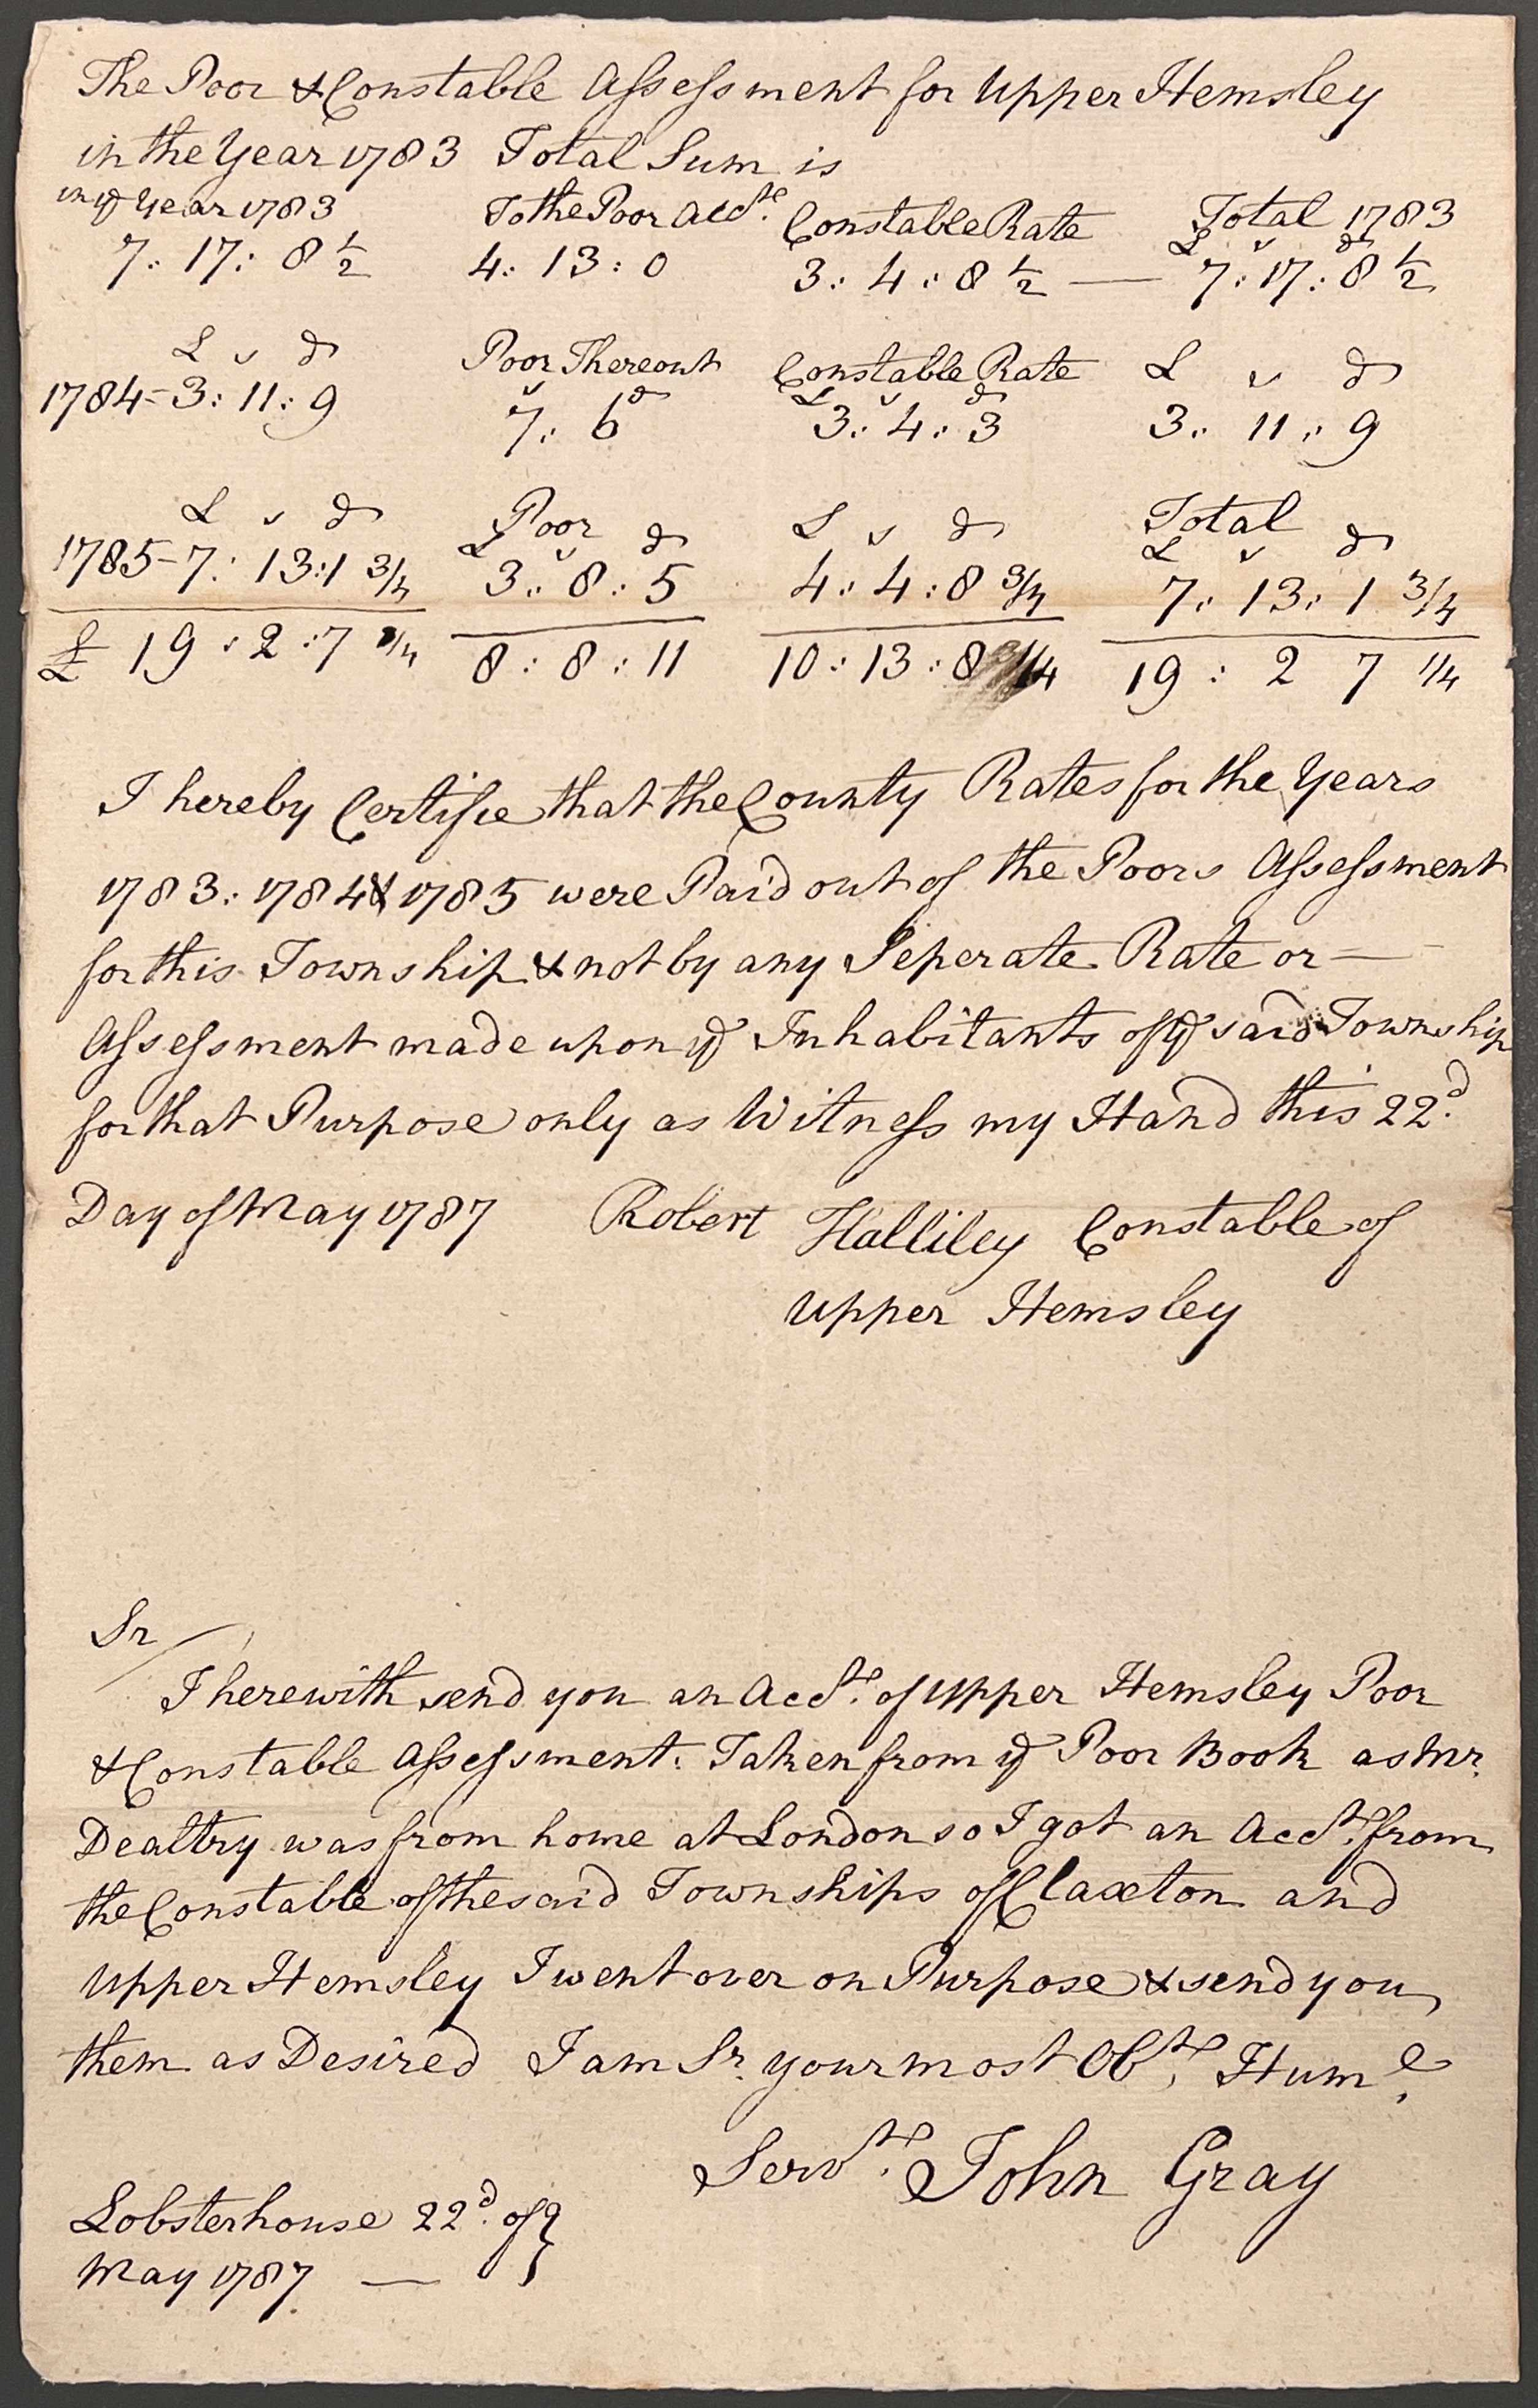 The Poor & Constable Assessment for Upper Hemsley
in the Year 1783 Total Sum is
in ye Year 1783 To the Poor Acct. Constable Rate Total 1783
£ s d
7: 17: 8 ½ 4: 13: 0 3: 4: 8 ½ — 7: 17: 8 ½
£ s d Poor Thereout Constable Rate £ s d
s d £ s d
1784 = 3: 11: 9 7: 6 3: 4: 3 3: 11: 9
£ s d Poor £ s d Total
£ s d £ s d
1785 - 7: 13: 1 3/4 3: 8: 5 4: 4: 8 3/4 7: 13: 1 3/4
£ 19: 2: 7 1/4 8: 8: 11 10: 13: 8 1/4 19: 2 7 1/4
I hereby Certifie that the County Rates for the Years
1783: 1784 & 1785 were Paid out of the Poors Assessment
for this Township & not by any Seperate Rate or —
Assessment made upon ye Inhabitants of ye said Township
for that Purpose only as Witness my Hand this 22d.
Day of May 1787 Robert Halliley Constable of
Upper Hemsley
Sr
I herewith send you an Acct. of Upper Hemsley Poor
& Constable Assessment. Taken from ye Poor Book as Mr.
Dealtry was from home at London so I got an Acct. from
the Constable of the said Townships of Claxton and
Upper Hemsley I went over on Purpose & send you
them as Desired I am Sr. your most Obt. Hume.
Servt. John Gray
Lobsterhouse 22d. of }
May 1787 —